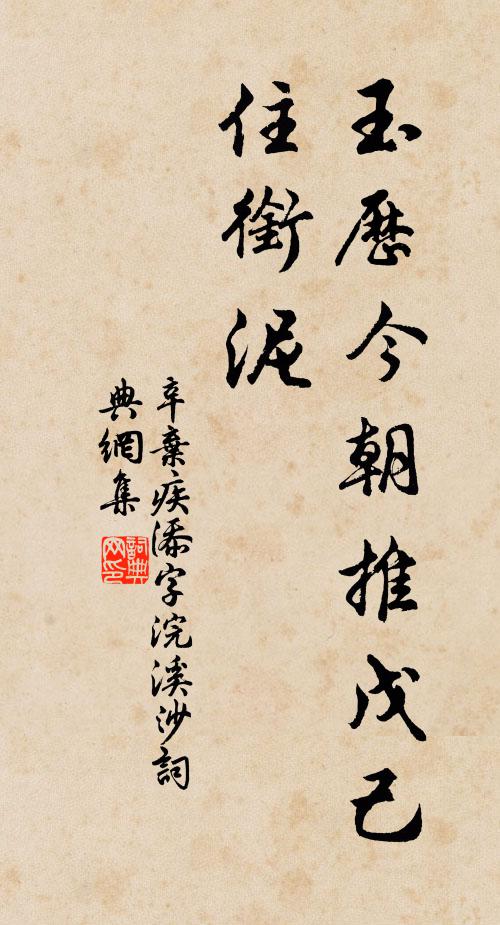 玉歷今朝推戊己
住銜泥
辛棄疾添字浣溪沙詞
典網集
詞典網印